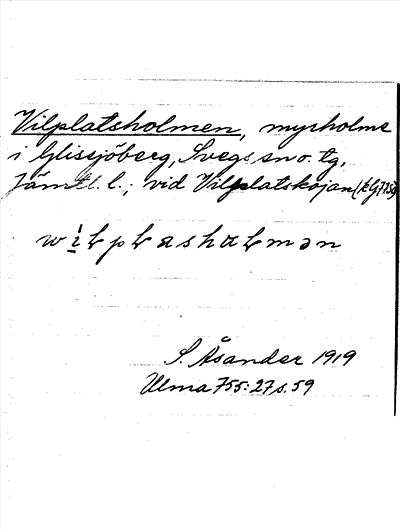 Vilplatsholmen, myrholme
i Glissjöberg, Svegs sn o. tg,
Jämtl. l.; vid Vilplatskojan
wilplasholmən
S. Åsander 1919
Ulma 755:27 s. 59